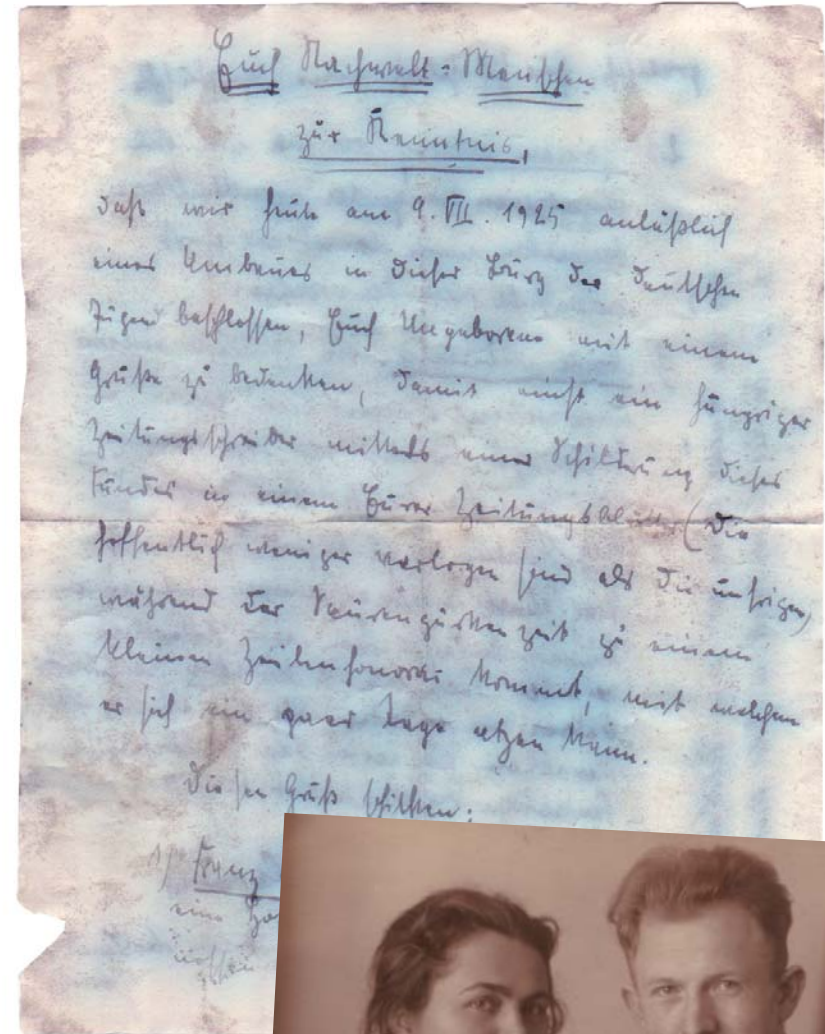 Euch Nachwelt-Menschen
zur Kenntnis,
daß wir heute am 9. VII. 1925 anläßlich
eines Umbaues in dieser Burg der deutschen
Jugend beschlossen, Euch Ungeborene mit einem
Gruße zu bedenken, damit nicht ein hungriger
Zeitungsschreiber mittels einer Schilderung dieses
Fundes in einem Eurer Zeitungsblätter (die
hoffentlich weniger verlogen sind als die unsrigen)
während der Saurengurkenzeit zu einem
kleinen Zeilenhonorar kommt, mit welchem
er sich ein paar Tage atzen kann.
Diesen Gruß schickten:
1) Franz
eine